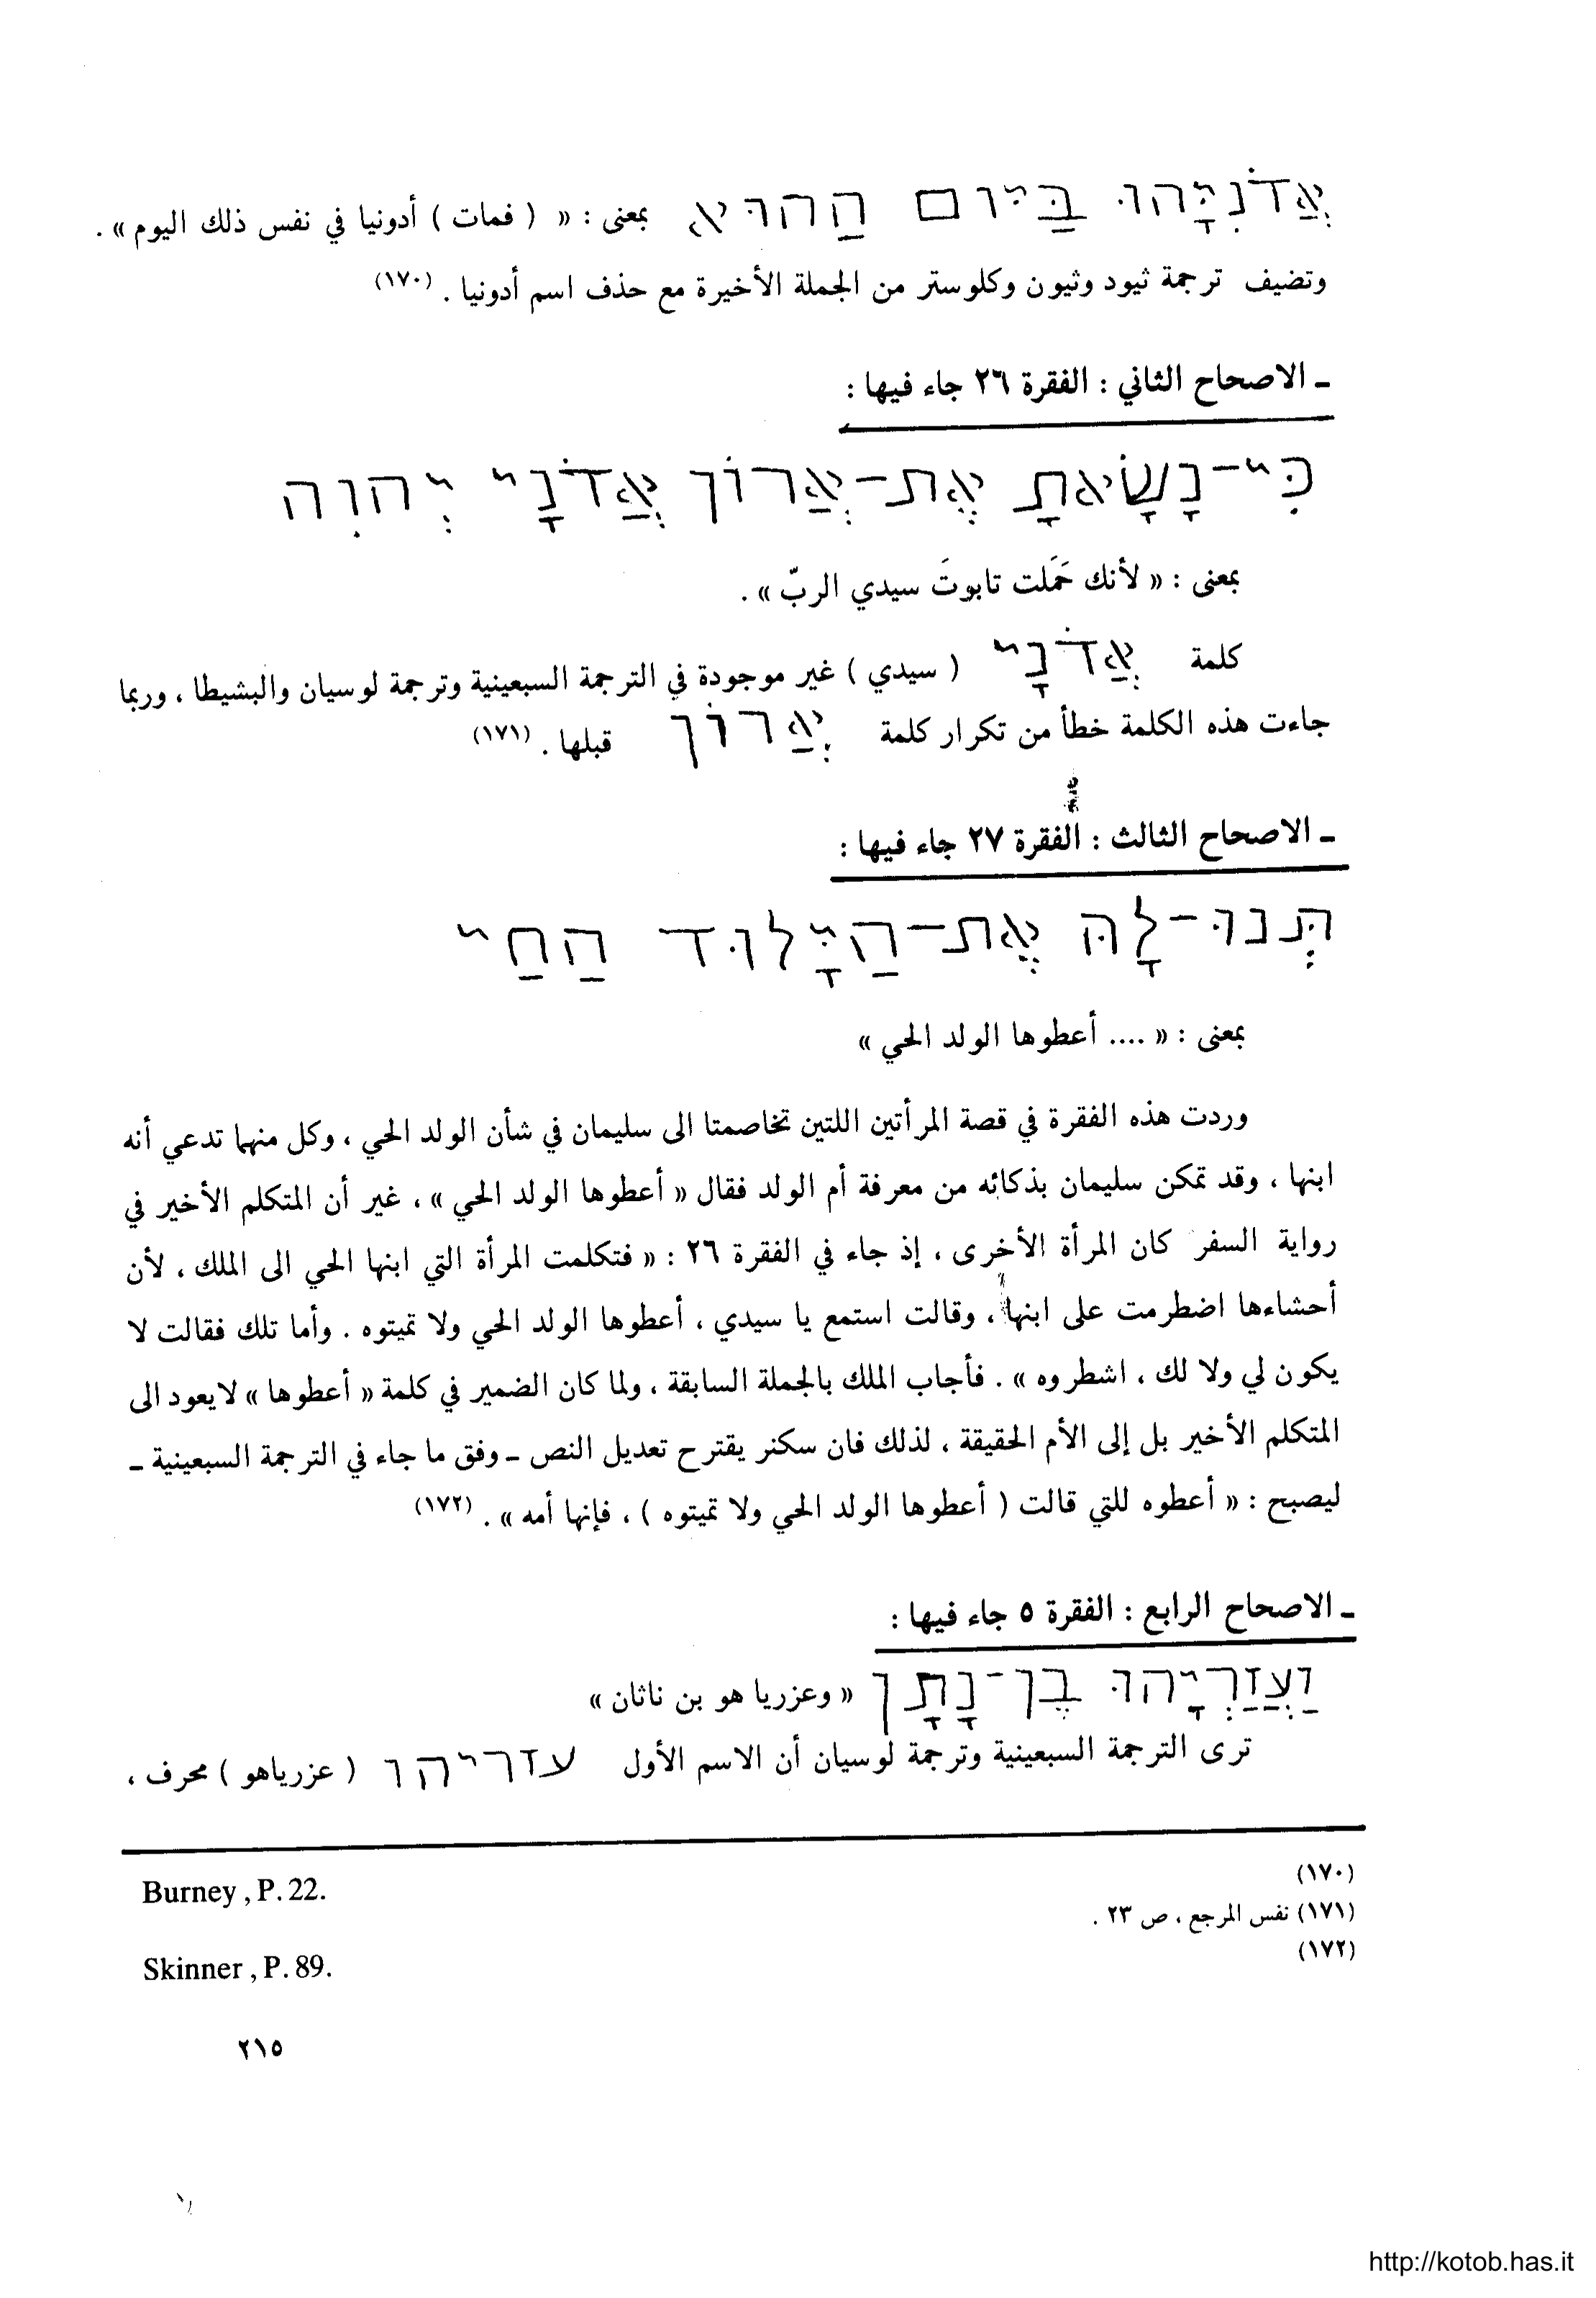 אֲדֹנִיָּהוּ בַּיּוֹם הַהוּא بمعنى : « ( فمات ) أدونيا في نفس ذلك اليوم » .
وتضيف ترجمة ثيود وثيون وكلوستر من الجملة الأخيرة مع حذف اسم أدونيا . (١٧٠)
ـ الاصحاح الثاني : الفقرة ٢٦ جاء فيها :
כִּי-נָשָׂאתָ אֶת-אֲרוֹן אֲדֹנָי יְהוִה
بمعنى : « لأنك حَملت تابوتَ سيدي الربّ » .
كلمة אֲדֹנָי ( سيدي ) غير موجودة في الترجمة السبعينية وترجمة لوسيان والبشيطا ، وربما
جاءت هذه الكلمة خطأ من تكرار كلمة אֲרוֹן قبلها . (١٧١)
ـ الاصحاح الثالث : الفقرة ٢٧ جاء فيها :
תְּנוּ-לָהּ אֶת-הַיָּלוּד הַחַי
بمعنى : « .... أعطوها الولد الحي »
وردت هذه الفقرة في قصة المرأتين اللتين تخاصمتا الى سليمان في شأن الولد الحي ، وكل منهما تدعي أنه
ابنها ، وقد تمكن سليمان بذكائه من معرفة أم الولد فقال « أعطوها الولد الحي » ، غير أن المتكلم الأخير في
رواية السفر كان المرأة الأخرى ، إذ جاء في الفقرة ٢٦ : « فتكلمت المرأة التي ابنها الحي الى الملك ، لأن
أحشاءها اضطرمت على ابنها ، وقالت استمع يا سيدي ، أعطوها الولد الحي ولا تميتوه . وأما تلك فقالت لا
يكون لي ولا لك ، اشطروه » . فأجاب الملك بالجملة السابقة ، ولما كان الضمير في كلمة « أعطوها » لا يعود الى
المتكلم الأخير بل إلى الأم الحقيقة ، لذلك فان سكنر يقترح تعديل النص ـ وفق ما جاء في الترجمة السبعينية ـ
ليصبح : « أعطوه للتي قالت ( أعطوها الولد الحي ولا تميتوه ) ، فإنها أمه » . (١٧٢)
ـ الاصحاح الرابع : الفقرة ٥ جاء فيها :
וַעֲזַרְיָהוּ בֶּן-נָתָן « وعزريا هو بن ناثان »
ترى الترجمة السبعينية وترجمة لوسيان أن الاسم الأول עזריהו ( عزرياهو ) محرف ،
(١٧٠) Burney , P. 22.
(١٧١) نفس المرجع ، ص ٢٣ .
(١٧٢) Skinner , P. 89.
٢١٥
http://kotob.has.it